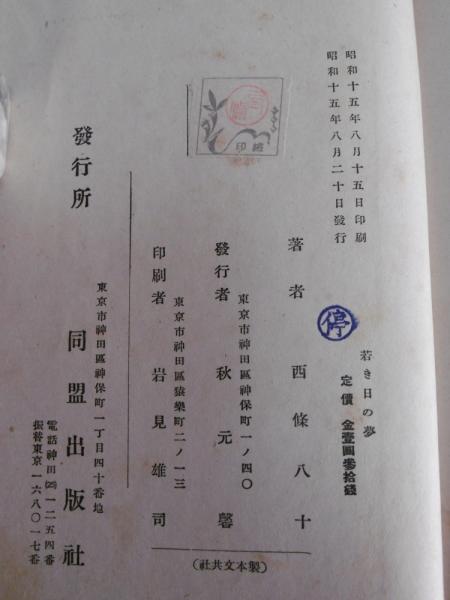 昭和十五年八月十五日印刷
昭和十五年八月二十日發行
若き日の夢
定價 金壹圓參拾錢
停
著者 西條八十
東京市神田區神保町一ノ四〇
發行者 秋元馨
東京市神田區猿樂町二ノ一三
印刷者 岩見雄司
檢印
東京市神田區神保町一丁目四十番地
發行所 同盟出版社
電話神田㉕一二五四番
振替東京一六八〇一七番
(製本文共社)